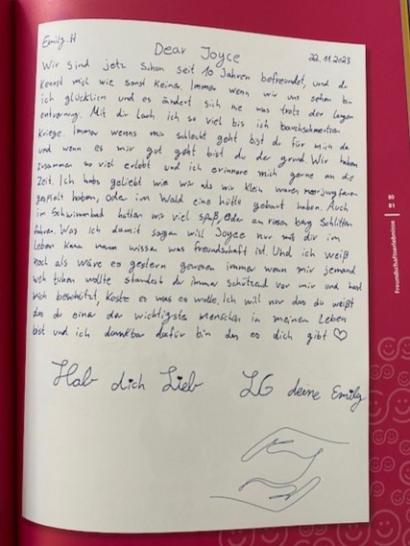 Emily.H
Dear Joyce
22.11.2023
Wir sind jetz schon seit 10 Jahren befreundet, und du
kennst mich wie sonst keiner. Immer wenn wir uns sehen bin
ich glücklich und es ändert sich nie was trotz der langen
entfernung. Mit dir lach ich so viel bis ich bauchschmerzen
kriege. Immer wenns mir schlecht geht bist du für mich da
und wenn es mir gut geht bist du der grund. Wir haben
zusammen so viel erlebt und ich erinnere mich gerne an die
Zeit. Ich habs geliebt wie wir als wir klein waren meerjungfrauen
gespielt haben, oder im Wald eine hütte gebaut haben. Auch
im Schwimmbad hatten wir viel spaß, oder am rosen berg Schlitten
fahren. Was ich damit sagen will Joyce nur mit dir im
Leben kann mann wissen was freundschaft ist. Und ich weiß
noch als wäre es gestern gewesen immer wenn mir jemand
weh tuhen wollte standest du immer schützend vor mir und hast
mich beschützt, Koste es was es wolle. Ich will nur das du weißt
das du einer der wichtigste menschen in meinen Leben
bist und ich dankbar dafür bin das es dich gibt ♡
Hab dich Lieb LG deine Emily
Freundschaftserlebnisse